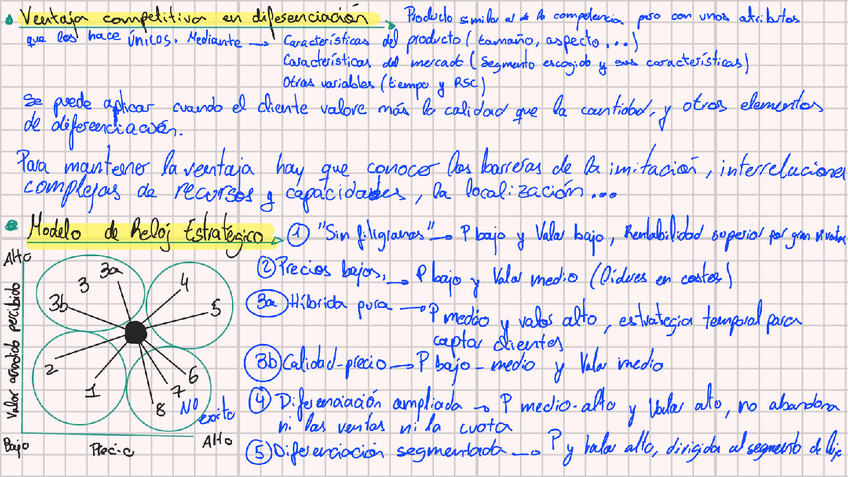 Ventaja competitiva en diferenciación → Producto similar al de la competencia pero con unos atributos
que los hace únicos. Mediante → Características del producto (tamaño, aspecto...)
Características del mercado (segmento escogido y sus características)
Otras variables (tiempo y RSC)
Se puede aplicar cuando el cliente valore más la calidad que la cantidad, y otros elementos
de diferenciación.
Para mantener la ventaja hay que conocer las barreras de la imitación, interrelaciones
complejas de recursos y capacidades, la localización...
Modelo de Reloj Estratégico → ① "Sin filigranas" → P bajo y Valor bajo, Rentabilidad superior por gran
② Precios bajos, → P bajo y Valor medio (líderes en costes)
3a Híbrida pura → P medio y valor alto, estrategia temporal para
captar clientes
3b Calidad-precio → P bajo-medio y Valor medio
④ Diferenciación ampliada → P medio-alto y Valor alto, no abandona
ni las ventas ni la cuota
⑤ Diferenciación segmentada → P y Valor alto, dirigida al segmento de lujo
Alto
Valor añadido percibido
Bajo
Precio
Alto
3a
3
3b
4
5
2
1
6
7
8
No éxito